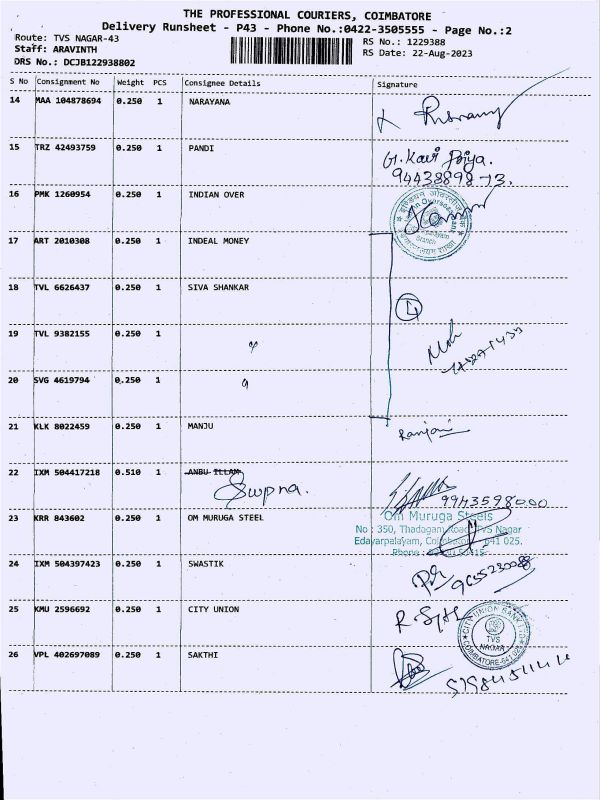 THE PROFESSIONAL COURIERS, COIMBATORE
Delivery Runsheet - P43 - Phone No.:0422-3505555 - Page No.:2
Route: TVS NAGAR-43
RS No.: 1229388
Staff: ARAVINTH
RS Date: 22-Aug-2023
DRS No.: DCJB122938802
S No Consignment No Weight PCS Consignee Details Signature
14 MAA 104878694 0.250 1 NARAYANA
15 TRZ 42493759 0.250 1 PANDI
G. Kavi Priya.
94438898 73.
16 PMK 1260954 0.250 1 INDIAN OVER
17 ART 2010308 0.250 1 INDEAL MONEY
18 TVL 6626437 0.250 1 SIVA SHANKAR
4
19 TVL 9382155 0.250 1 "
20 SVG 4619794 0.250 1 "
21 KLK 8022459 0.250 1 MANJU
Ranjani
22 IXM 504417218 0.510 1 ANBU ILLAM
Swpna.
9943598000
23 KRR 843602 0.250 1 OM MURUGA STEEL
Om Muruga Steels
No : 350, Thadagam Road, TVS Nagar
Edayarpalayam, Coimbatore - 641 025.
Phone :
24 IXM 504397423 0.250 1 SWASTIK
25 KMU 2596692 0.250 1 CITY UNION
CITY UNION BANK LTD
TVS
NAGAR
COIMBATORE-641 025
26 VPL 402697089 0.250 1 SAKTHI